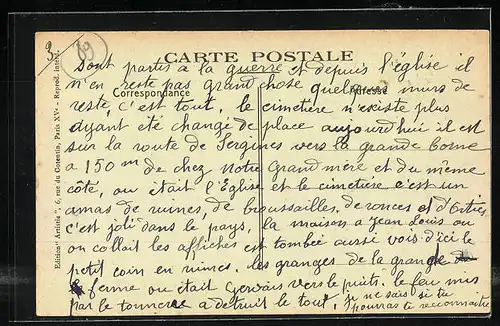 3
89
CARTE POSTALE
Correspondance
Adresse
Sont partis a la guerre et depuis l'église il
n'en reste pas grand chose quelques murs de
reste, c'est tout, le cimetière n'existe plus
ayant été changé de place aujourd'hui il est
sur la route de Sergines vers la grande borne
a 150m de chez notre grand mère et du même
côté, ou était l'Eglise et le cimetière c'est un
amas de ruines, de broussailles, de ronces et d'Orties
c'est joli dans le pays, la maison a Jean Louis ou
on collait les affiches est tombée aussi vois d'ici le
petit coin en ruines. les granges de la grande
ferme ou était Gervais vers le puits. le feu mis
par le tonnerre a detruit le tout, je ne sais si tu
pourras te reconnaitre
Edition "Artistic", 6, rue du Cotentin, Paris XVe - Reprod. interd.